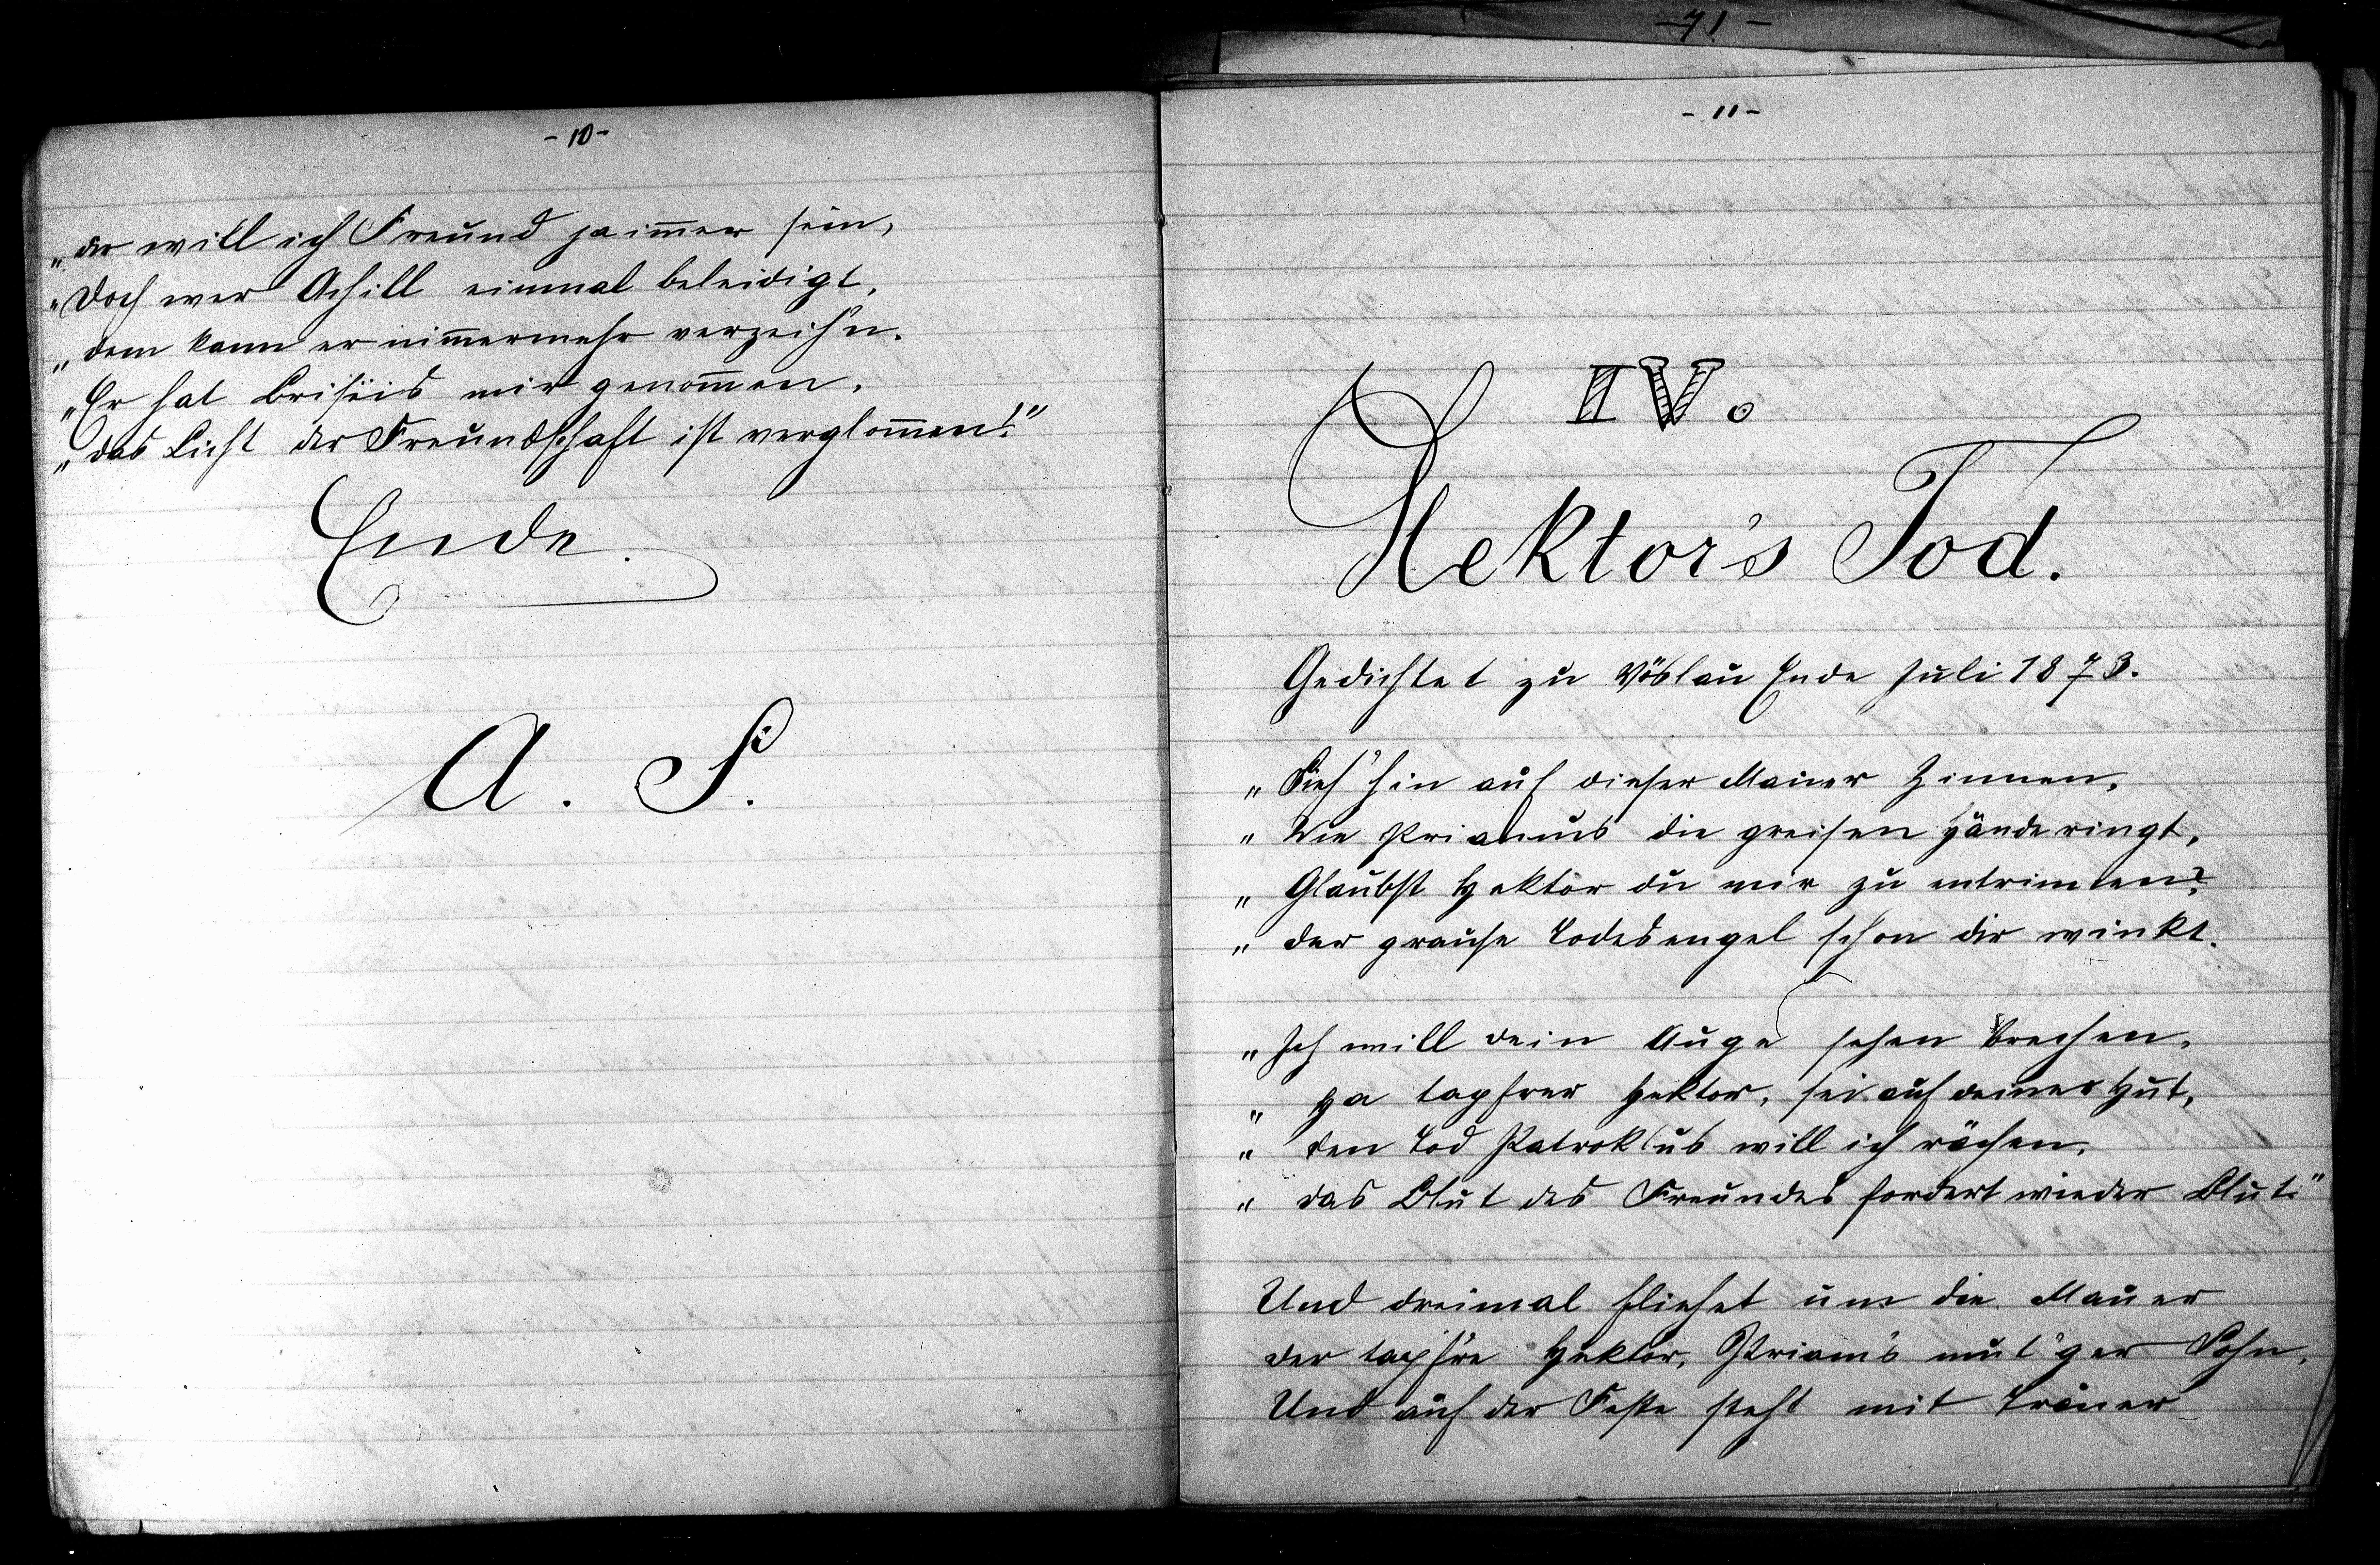 - 10 -
„der will ich Freund ja im̅er sein,
„Doch wer Achill einmal beleidigt,
„dem kann er nim̅ermehr verzeih'n.
„Er hat Brisëis mir genom̅en,
„das Licht der Freundschaft ist verglom̅en!"
Ende.
A. S.
- 71 -
- 11 -
IV.
Hektor's Tod.
Gedichtet zu Vöslau Ende Juli 1873.
„Sieh' hin auf dieser Mauer Zinnen,
„Wie Priamus die greisen Hände ringt,
„Glaubst Hektor du mir zu entrinnen?
„der grause Todesengel schon dir winkt.
„Ich will dein Auge sehen brechen,
„Ha tapfrer Hektor, sei auf deiner Hut,
„den Tod Patroklus will ich rächen,
„das Blut des Freundes fordert wieder Blut."
Und dreimal fliehet um die Mauer
der tapf're Hektor, Priam's mut'ger Sohn,
Und auf der Feste steht mit Trauer